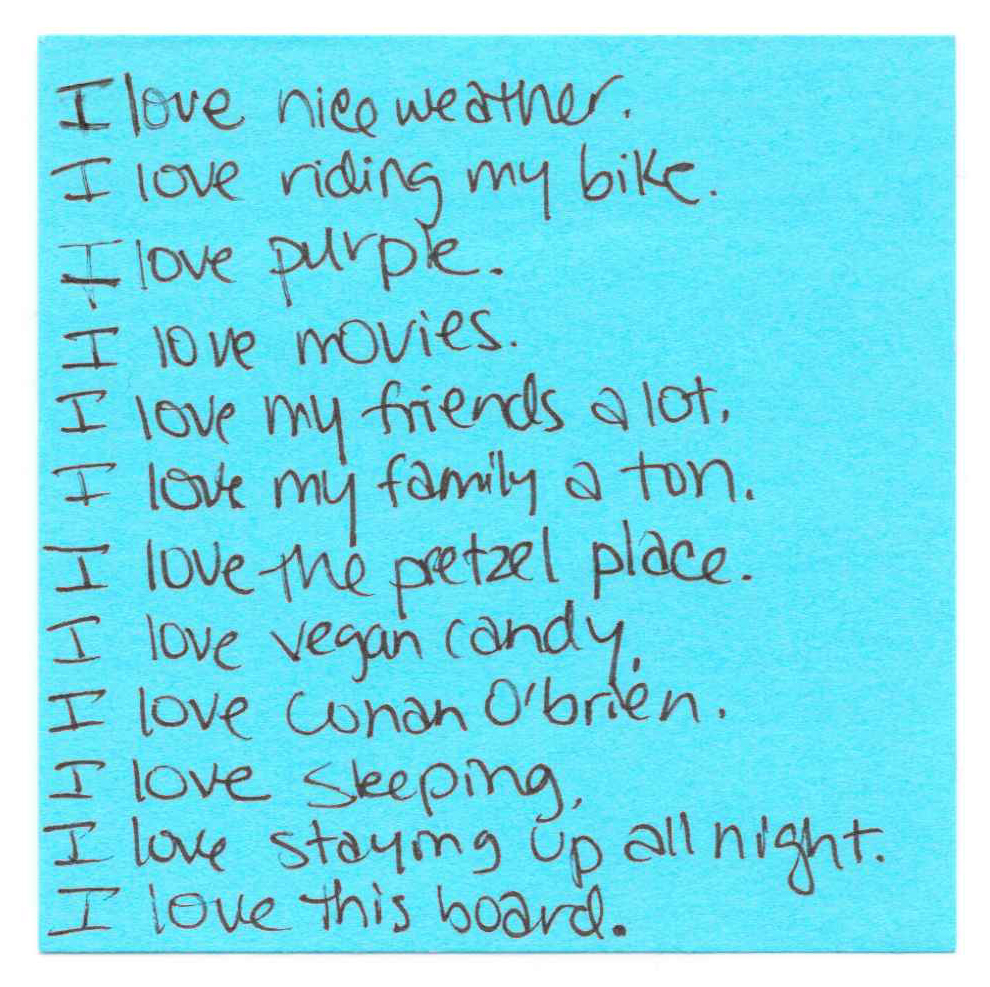 I love nice weather.
I love riding my bike.
I love purple.
I love movies.
I love my friends a lot.
I love my family a ton.
I love the pretzel place.
I love vegan candy.
I love Conan O'brien.
I love sleeping.
I love staying up all night.
I love this board.